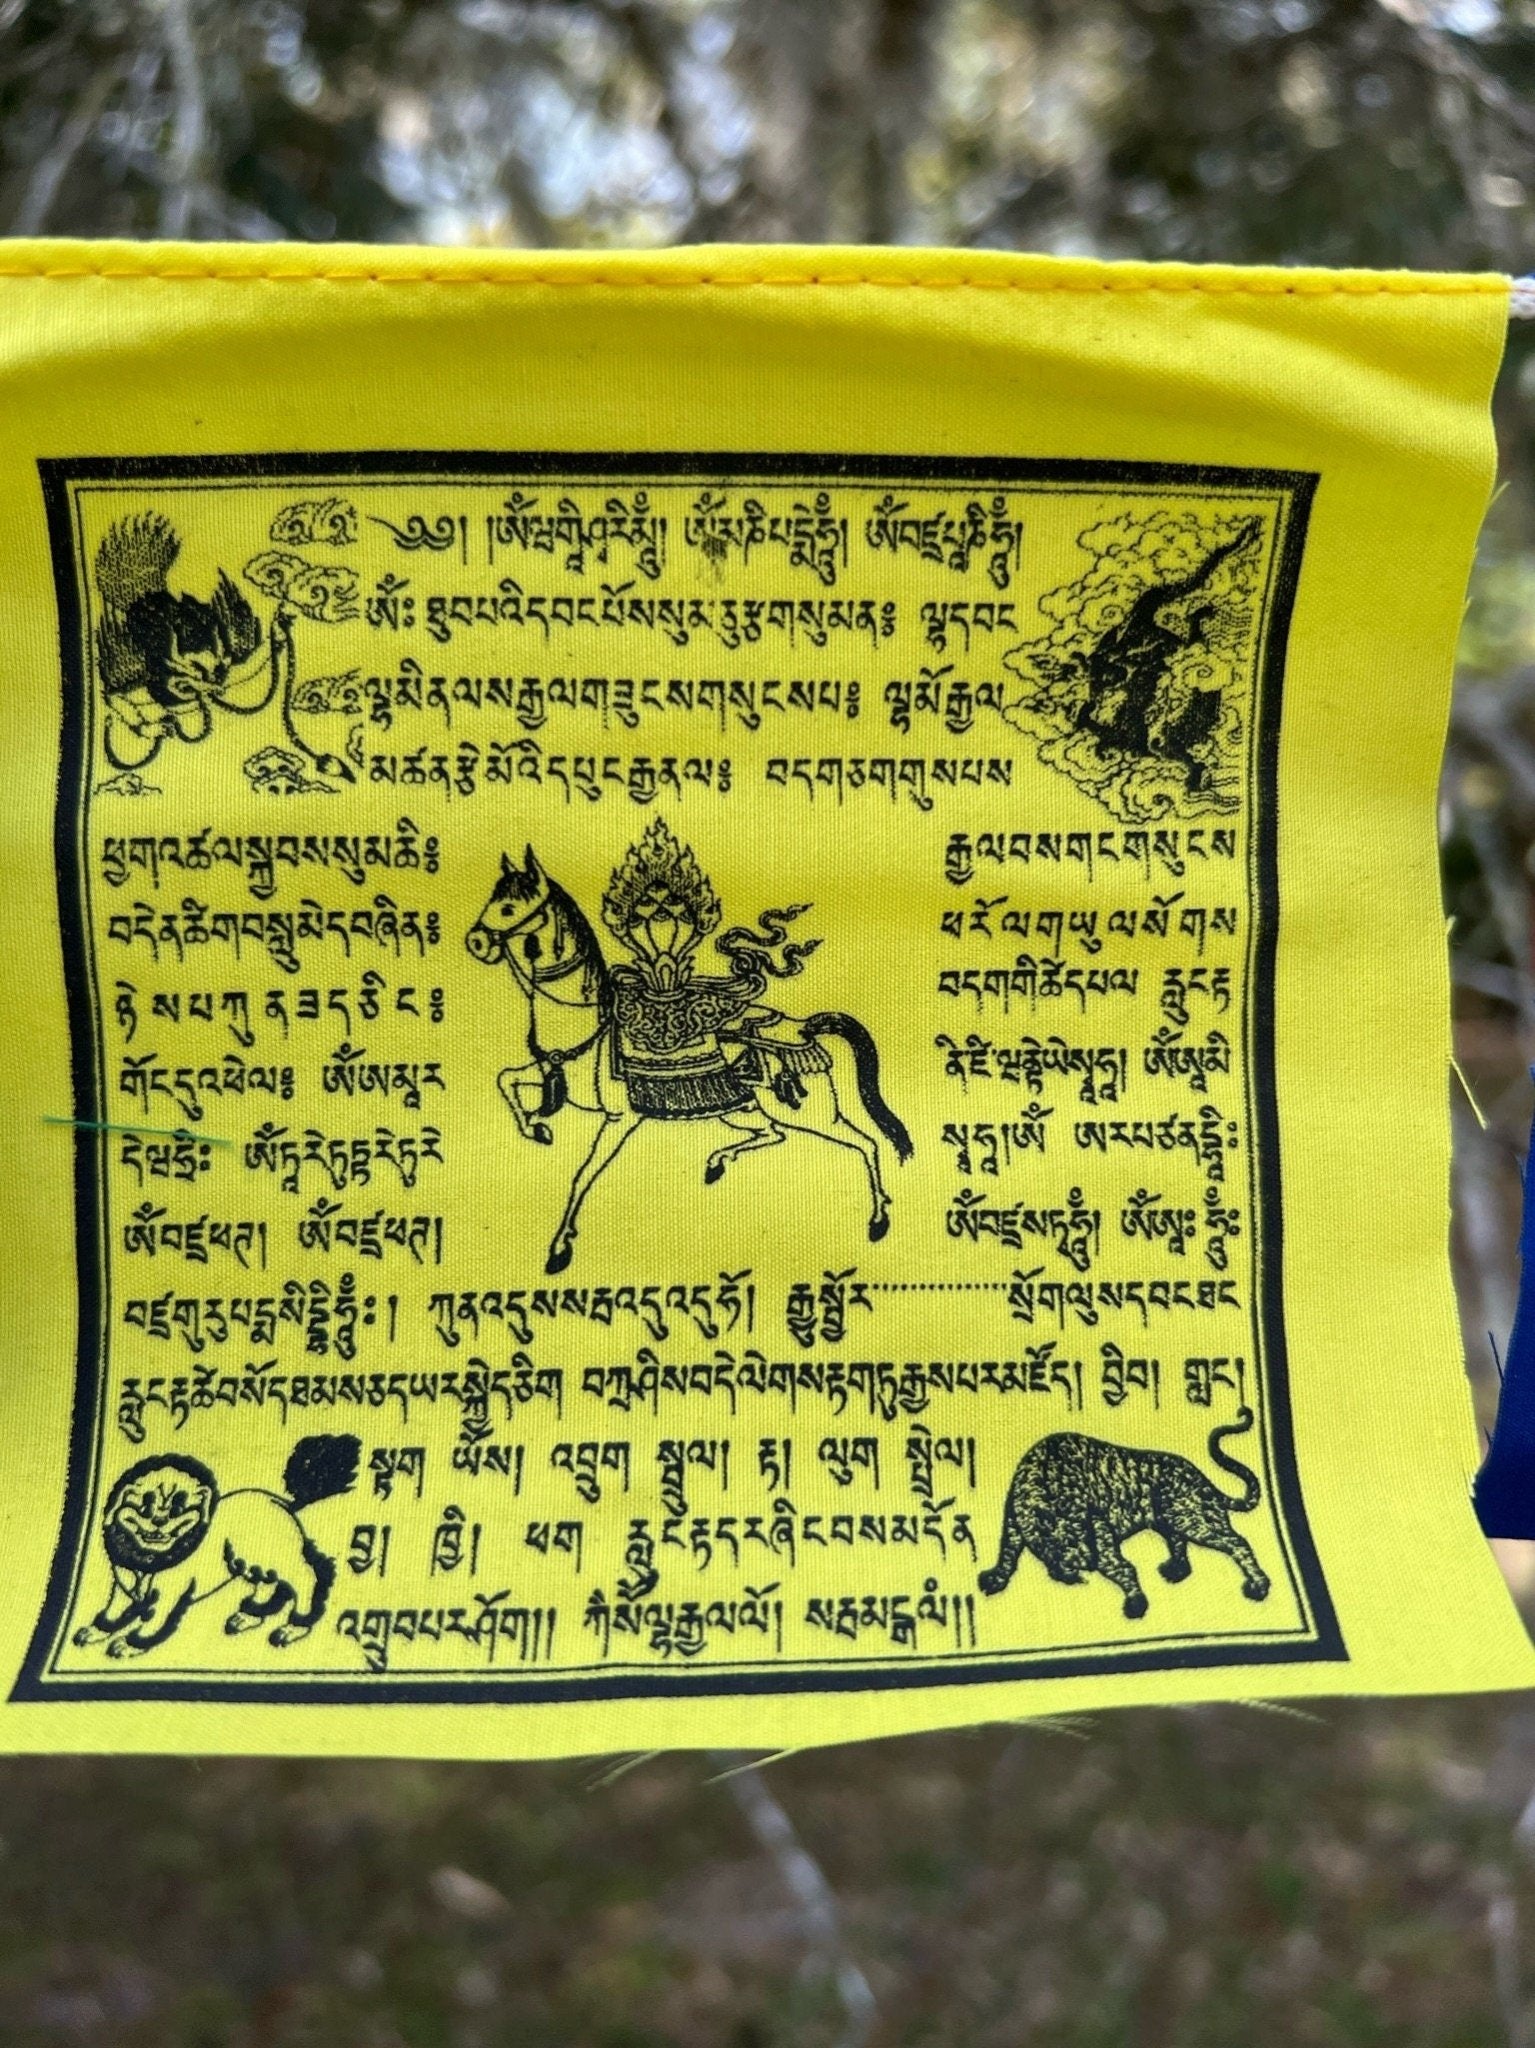 ༄༅། །ཨོཾ་ཝ་གཱི་ཤྭ་རི་མཱུཾ། ཨོཾ་མ་ཎི་པདྨེ་ཧཱུྃ། ཨོཾ་བཛྲ་པཱ་ཎི་ཧཱུྃ།
ཨོཾ༔ ཐུབ་པའི་དབང་པོས་སུམ་རུ་རྩ་གསུམ་ན༔ ལྷ་དབང
ལྷ་མིན་ལས་རྒྱལ་གཟུངས་གསུངས་པ༔ ལྷ་མོ་རྒྱལ
མཚན་རྩེ་མོའི་དཔུང་རྒྱན་ལ༔ བདག་ཅག་གུས་པས
ཕྱག་འཚལ་སྐྱབས་སུ་མཆི༔ རྒྱལ་བས་གང་གསུངས
བདེན་ཚིག་བསླུ་མེད་བཞིན༔ ཕ་རོལ་གཡུལ་སོགས
ཉེས་པ་ཀུན་ཟད་ཅིང༔ བདག་གི་ཚེ་དཔལ་རླུང་རྟ
གོང་དུ་འཕེལ༔ ཨོཾ་ཨ་མཱ་ར ནི་ཛི་ཝནྟེ་ཡེ་སྭཱ་ཧཱ། ཨོཾ་ཨཱ་མི
དེ་ཝ་ཧྲཱིཿ ཨོཾ་ཏཱ་རེ་ཏུཏྟཱ་རེ་ཏུ་རེ སྭཱ་ཧཱ།ཨོཾ ཨ་ར་པ་ཙ་ན་དྷཱིཿ
ཨོཾ་བཛྲ་ཕཊ། ཨོཾ་བཛྲ་ཕཊ། ཨོཾ་བཛྲ་སཏྭ་ཧཱུྃ། ཨོཾ་ཨཱཿ་ཧཱུྃཿ
བཛྲ་གུ་རུ་པདྨ་སིདྡྷི་ཧཱུྃཿ། ཀུན་འདུས་སརྦ་འདུ་འདུ་ཧོ། རྒྱུ་སྦྱོར་་་་་་་་་་་་་་་སྲོག་ལུས་དབང་ཐང
རླུང་རྟ་ཚེ་བསོད་ཐམས་ཅད་ཡར་སྐྱེད་ཅིག བཀྲ་ཤིས་བདེ་ལེགས་རྟག་ཏུ་རྒྱས་པར་མཛོད། བྱི་བ། གླང།
སྟག ཡོས། འབྲུག སྦྲུལ། རྟ། ལུག སྤྲེལ།
བྱ། ཁྱི། ཕག རླུང་རྟ་དར་ཞིང་བསམ་དོན
འགྲུབ་པར་ཤོག།། ཀཱི་སོ་ལྷ་རྒྱལ་ལོ། སརྦ་མངྒ་ལཾ།།